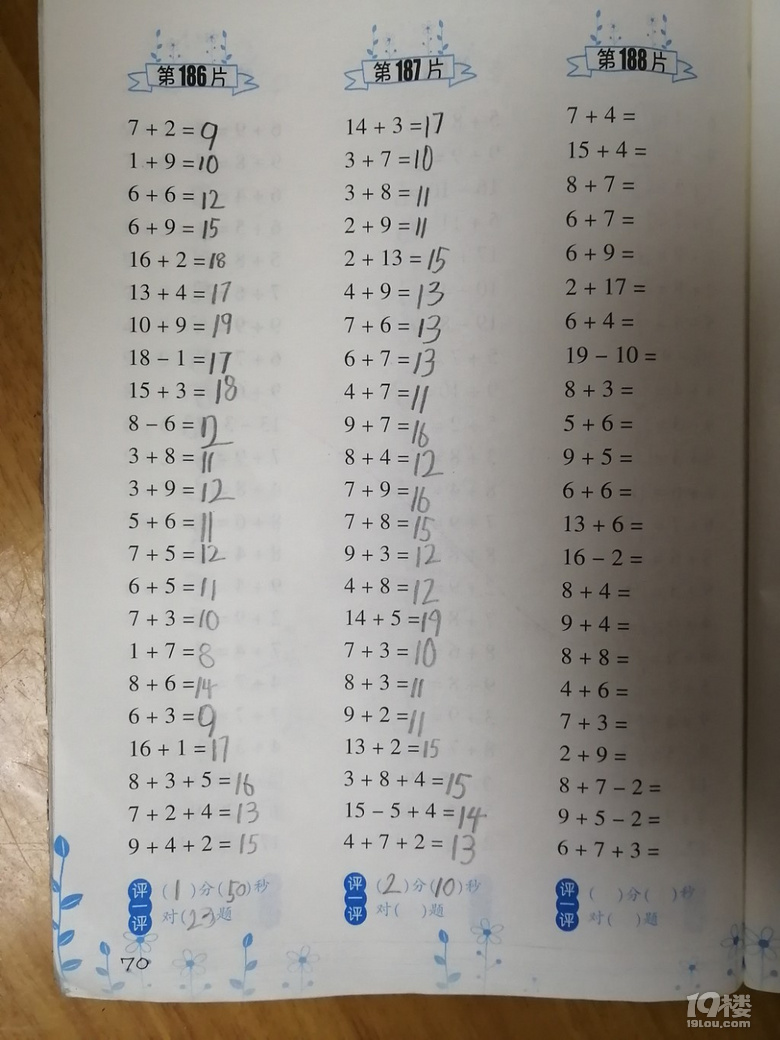 第186片
7 + 2 = 9
1 + 9 = 10
6 + 6 = 12
6 + 9 = 15
16 + 2 = 18
13 + 4 = 17
10 + 9 = 19
18 − 1 = 17
15 + 3 = 18
8 − 6 = 12
3 + 8 = 11
3 + 9 = 12
5 + 6 = 11
7 + 5 = 12
6 + 5 = 11
7 + 3 = 10
1 + 7 = 8
8 + 6 = 14
6 + 3 = 9
16 + 1 = 17
8 + 3 + 5 = 16
7 + 2 + 4 = 13
9 + 4 + 2 = 15
评一评
(1)分(50)秒
对(23)题
第187片
14 + 3 = 17
3 + 7 = 10
3 + 8 = 11
2 + 9 = 11
2 + 13 = 15
4 + 9 = 13
7 + 6 = 13
6 + 7 = 13
4 + 7 = 11
9 + 7 = 16
8 + 4 = 12
7 + 9 = 16
7 + 8 = 15
9 + 3 = 12
4 + 8 = 12
14 + 5 = 19
7 + 3 = 10
8 + 3 = 11
9 + 2 = 11
13 + 2 = 15
3 + 8 + 4 = 15
15 − 5 + 4 = 14
4 + 7 + 2 = 13
评一评
(2)分(10)秒
对( )题
第188片
7 + 4 =
15 + 4 =
8 + 7 =
6 + 7 =
6 + 9 =
2 + 17 =
6 + 4 =
19 − 10 =
8 + 3 =
5 + 6 =
9 + 5 =
6 + 6 =
13 + 6 =
16 − 2 =
8 + 4 =
9 + 4 =
8 + 8 =
4 + 6 =
7 + 3 =
2 + 9 =
8 + 7 − 2 =
9 + 5 − 2 =
6 + 7 + 3 =
评一评
( )分( )秒
对( )题
70
19楼
19lou.com